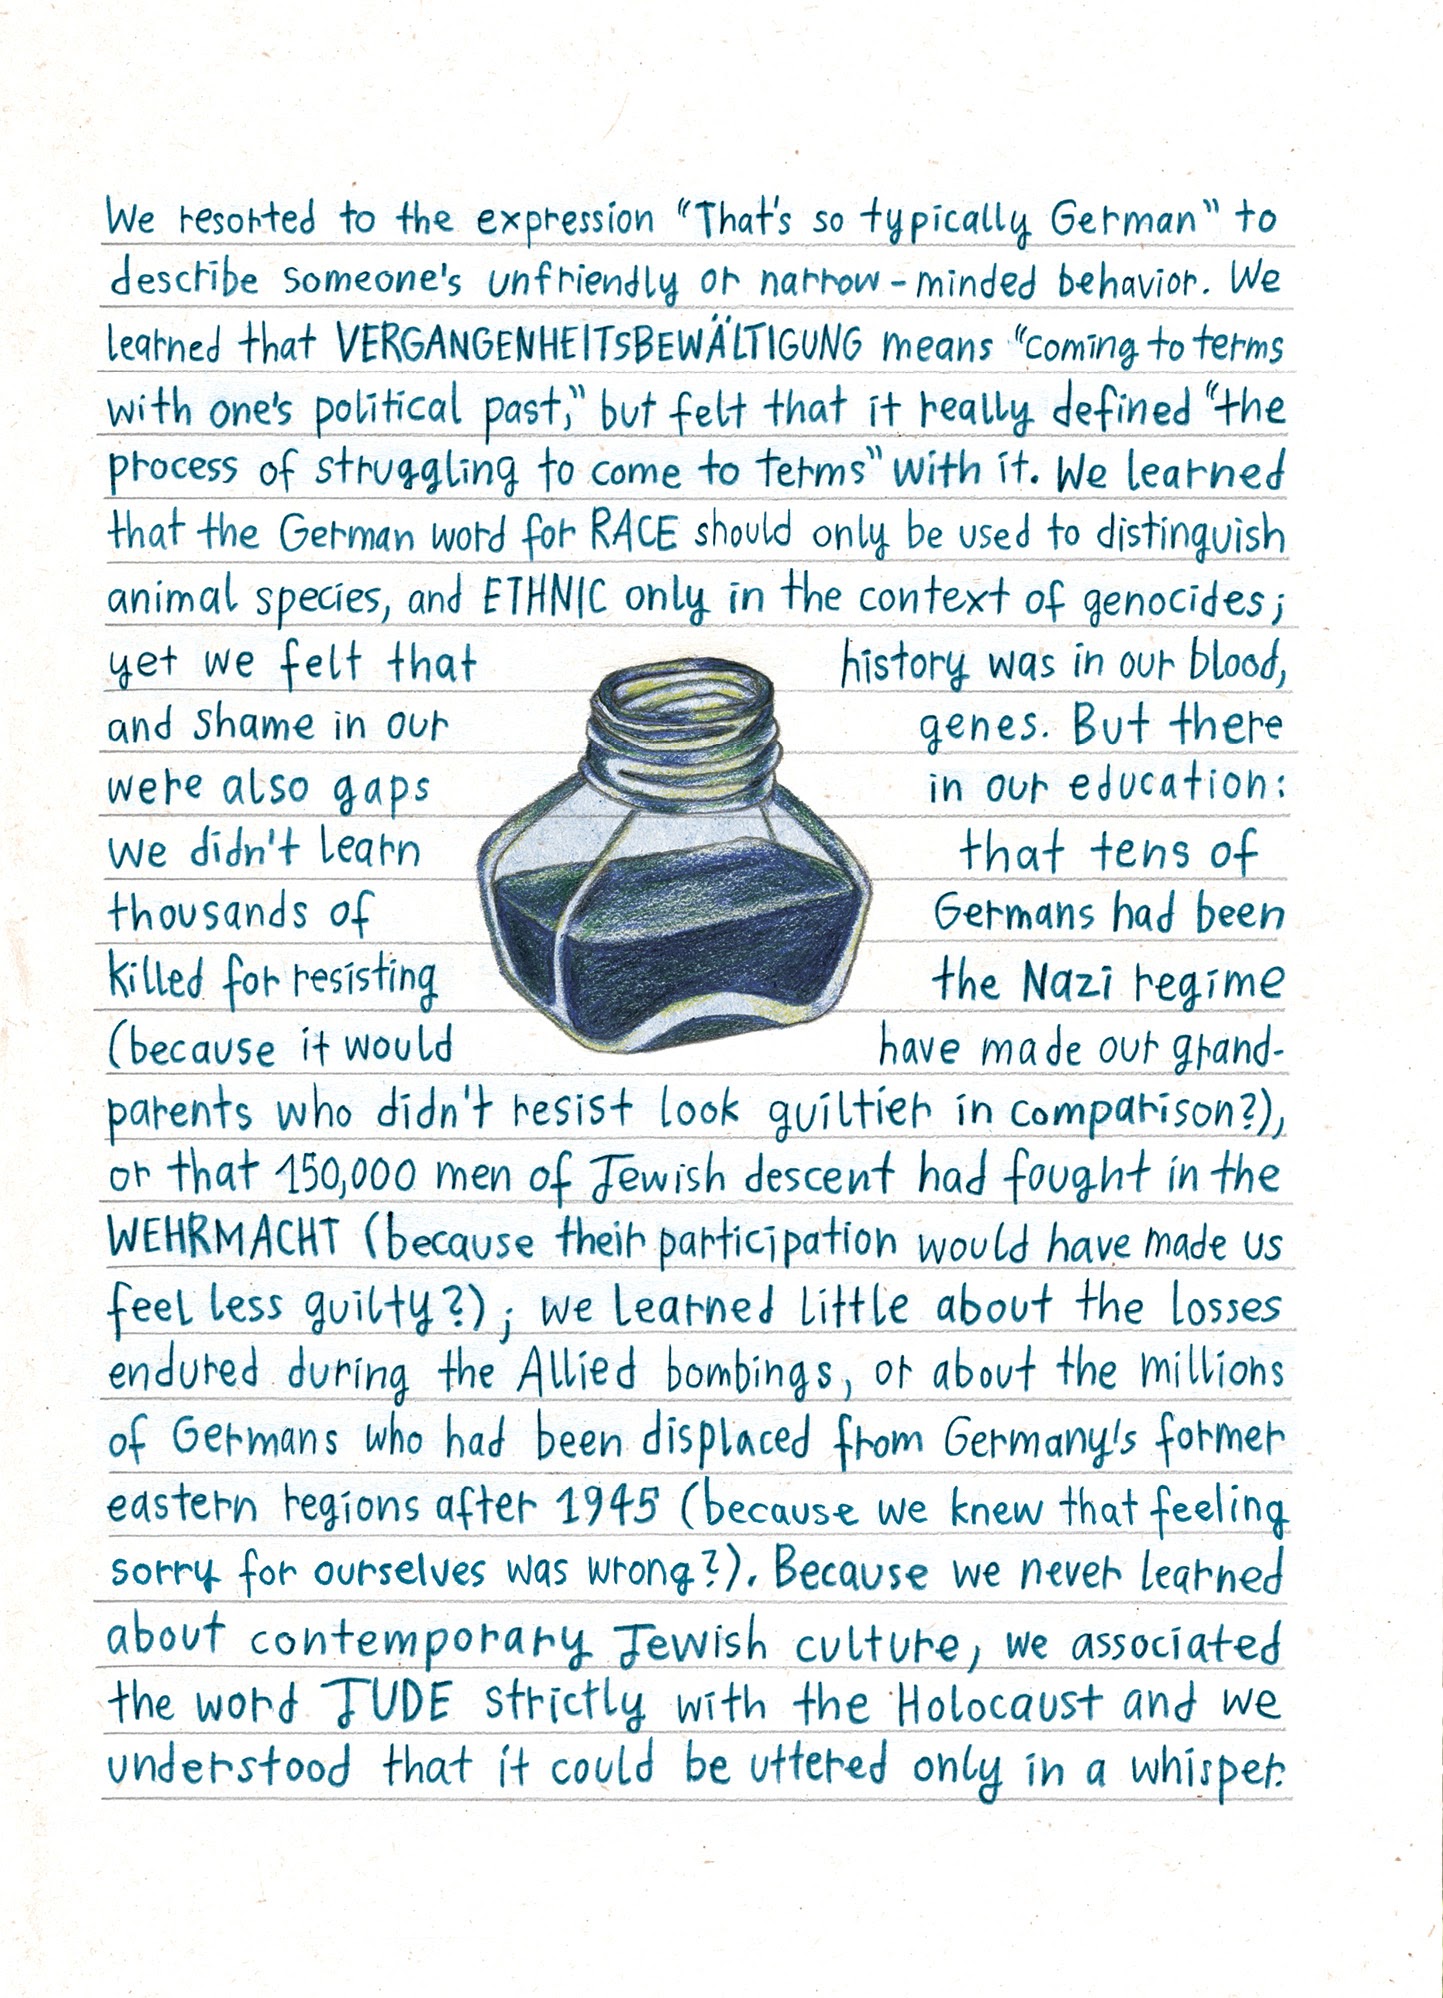 We resorted to the expression “That's so typically German” to
describe someone's unfriendly or narrow-minded behavior. We
learned that VERGANGENHEITSBEWÄLTIGUNG means “coming to terms
with one's political past,” but felt that it really defined “the
process of struggling to come to terms” with it. We learned
that the German word for RACE should only be used to distinguish
animal species, and ETHNIC only in the context of genocides;
yet we felt that history was in our blood,
and shame in our genes. But there
were also gaps in our education:
we didn't learn that tens of
thousands of Germans had been
killed for resisting the Nazi regime
(because it would have made our grand-
parents who didn't resist look guiltier in comparison?),
or that 150,000 men of Jewish descent had fought in the
WEHRMACHT (because their participation would have made us
feel less guilty?); we learned little about the losses
endured during the Allied bombings, or about the millions
of Germans who had been displaced from Germany's former
eastern regions after 1945 (because we knew that feeling
sorry for ourselves was wrong?). Because we never learned
about contemporary Jewish culture, we associated
the word JUDE strictly with the Holocaust and we
understood that it could be uttered only in a whisper.